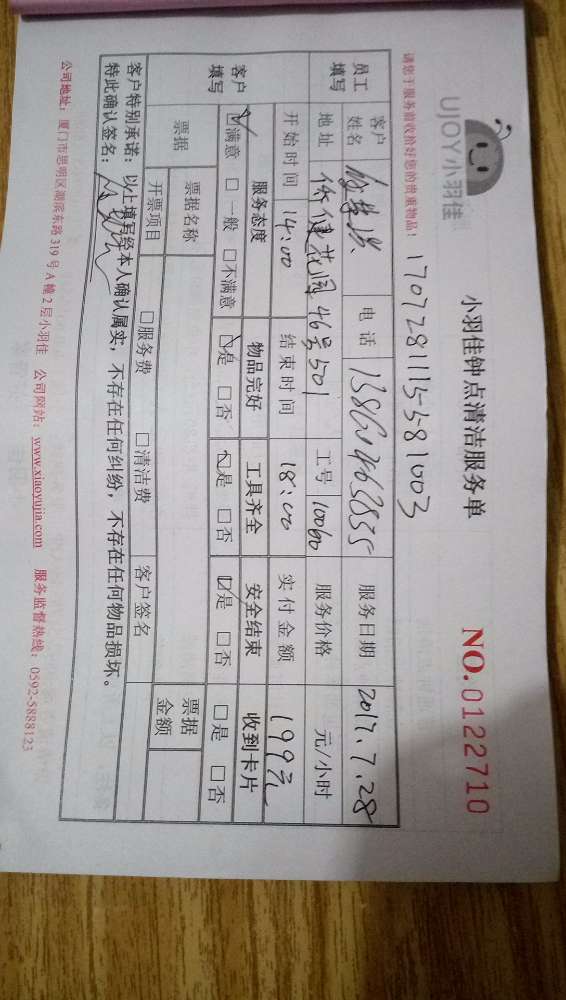 UJOY小羽佳
小羽佳钟点清洁服务单
NO.0122710
请您于服务前收拾好您的贵重物品！
170728111558 1003
员工填写 客户姓名 电话 服务日期 2017.7.28
地址 侨健花园46号501 工号 10060 服务价格 元/小时
开始时间 14:00 结束时间 18:00 实付金额 199元
客户填写 服务态度 物品完好 工具齐全 安全结束 收到卡片
☑满意 □一般 □不满意 ☑是 □否 ☑是 □否 ☑是 □否 □是 □否
票据 票据名称 票据金额
开票项目 □服务费 □清洁费 客户签名
客户特别承诺：以上填写经本人确认属实，不存在任何纠纷，不存在任何物品损坏。
特此确认签名：
公司地址：厦门市思明区湖滨东路319号A幢2层小羽佳 公司网站：www.xiaoyujia.com 服务监督热线：0592-5888123